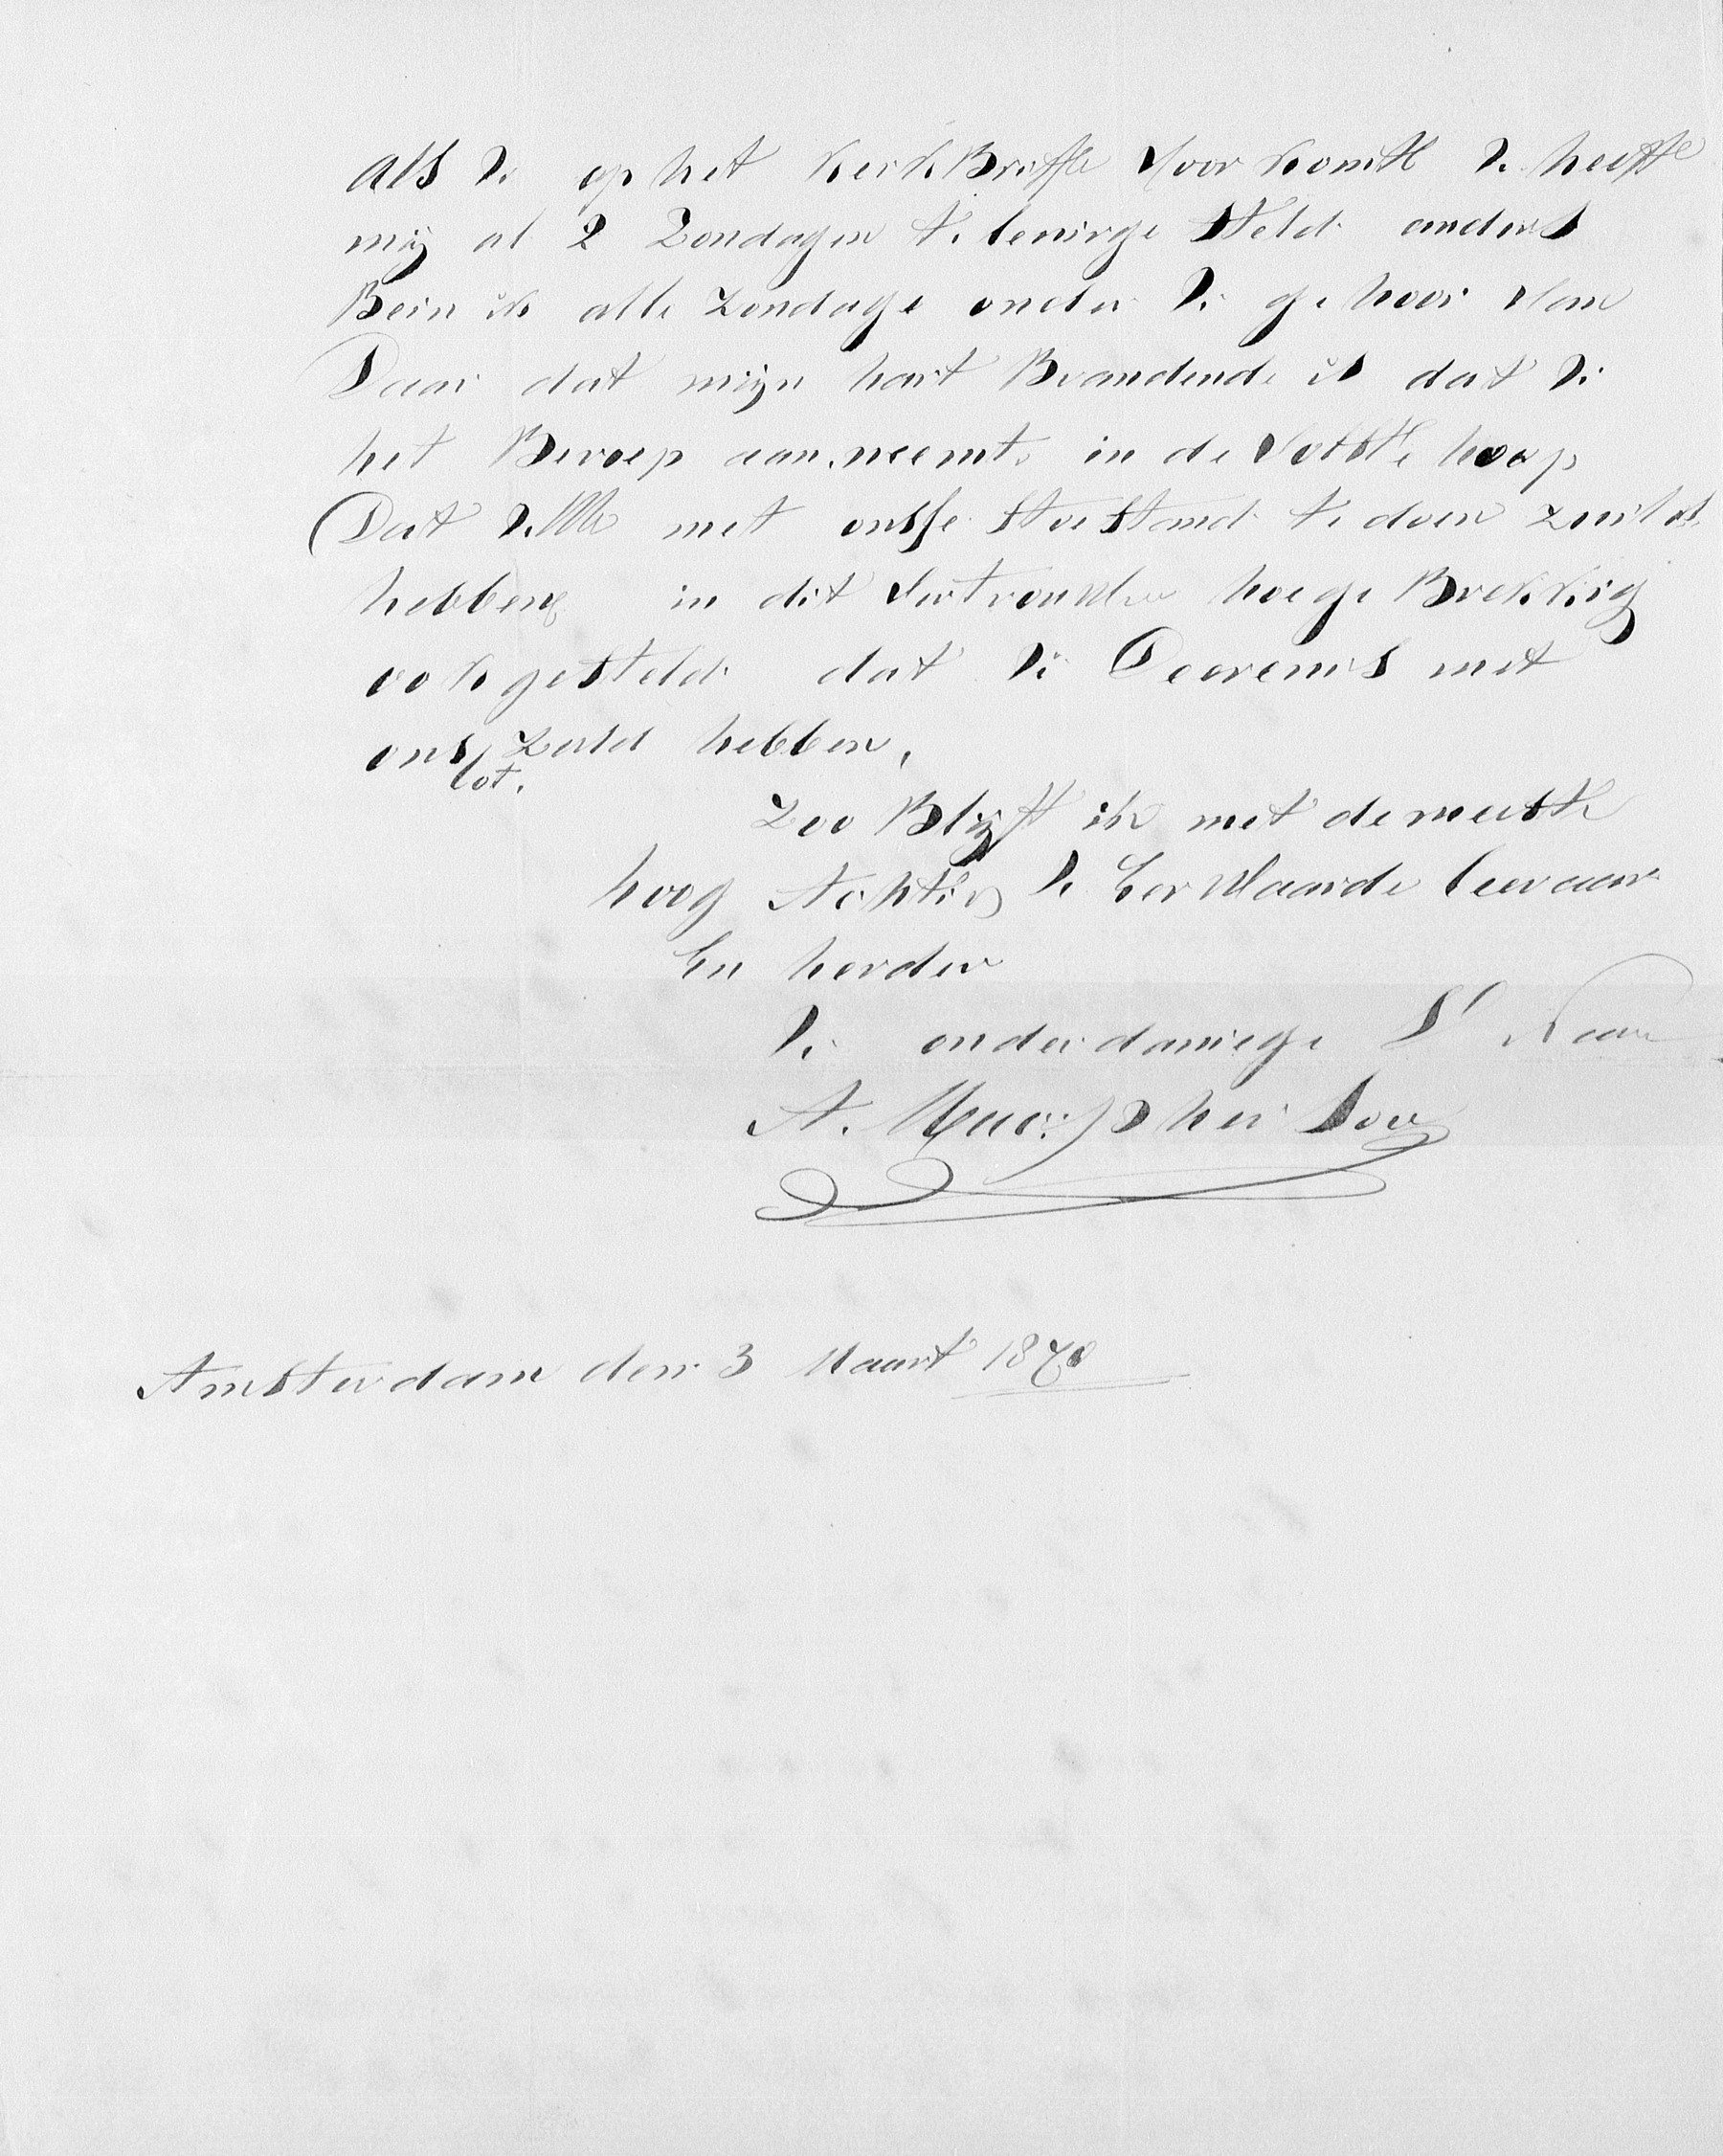 als U op het KerkBriffe Voor komtt U heeffe
mij al 2 Zondagen te leurige Steld anders
Bein ik alle Zondage onder U ge hoor Van
Daar dat mijn hart Brandende is dat U
het Beroep aan neemt in de Vast hoop
Dat U met onsse stoestand te doen zuld
hebben in dit Vertrouwen hoe ge Brekkig
ook gesteld dat U Deerenis met
ons zuld hebben,
lot.
Zoo Blijft ik met de meeste
hoog Achting U Eer Waarde leeraar
En herder
U onderdaniege D Naar
A. Macpherson
Amsterdam den 3 Maart 1878